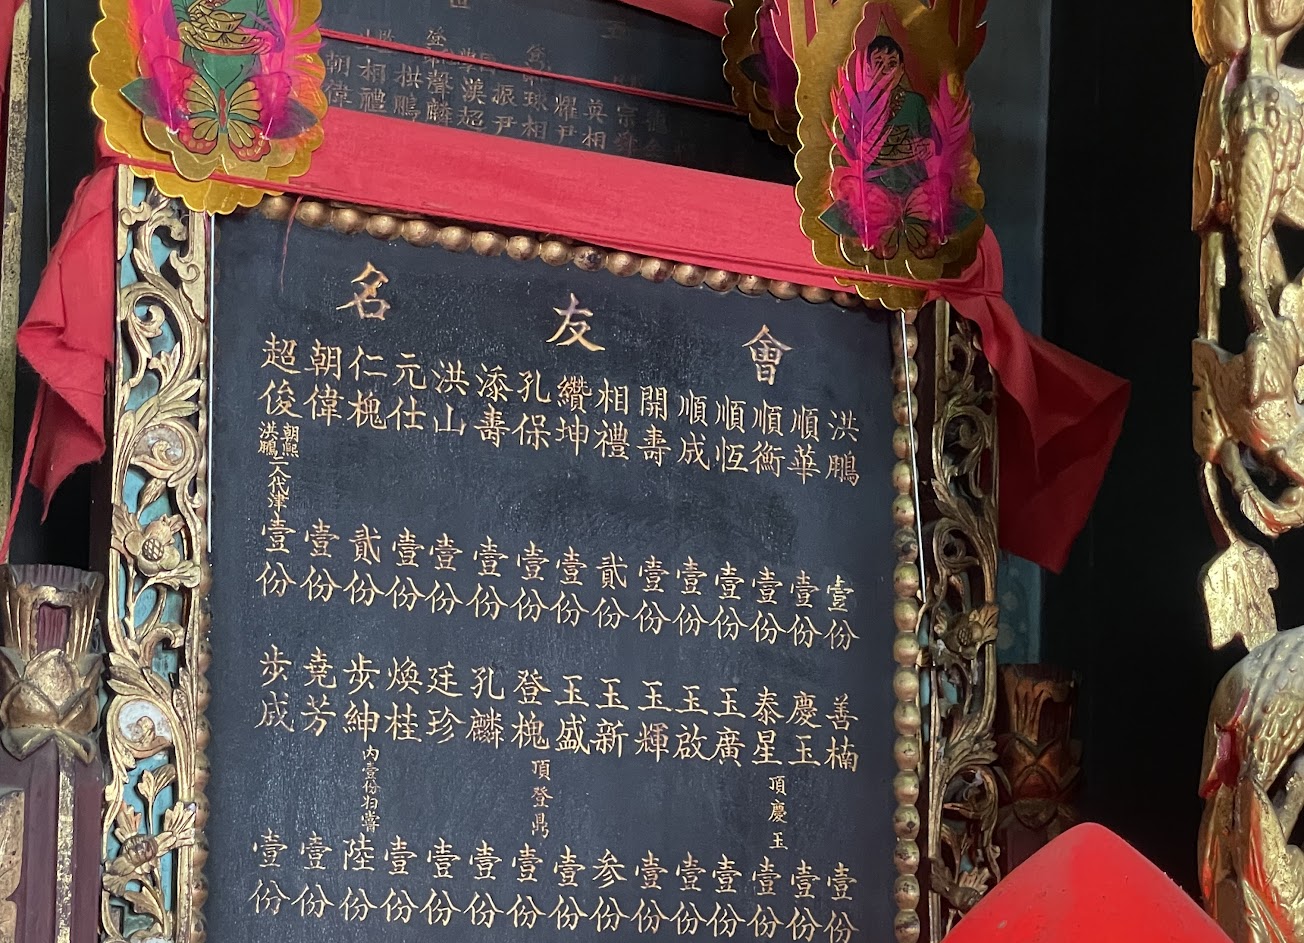 英相
耀尹
球相
振尹
漢超
聲麟
栱鵬
相禮
朝偉
會友名
洪鵬 壹份
順華 壹份
順衡 壹份
順恆 壹份
順成 壹份
開壽 壹份
相禮 貳份
纘坤 壹份
孔保 壹份
添壽 壹份
洪山 壹份
元仕 壹份
仁槐 貳份
朝偉 壹份
超俊 朝熙洪鵬二人代津 壹份
善楠 壹份
慶玉 壹份
泰星 頂慶玉 壹份
玉廣 壹份
玉啟 壹份
玉輝 壹份
玉新 参份
玉盛 壹份
登槐 頂登 壹份
孔麟 壹份
廷珍 壹份
煥桂 壹份
步紳 內壹份归嘗 陸份
堯芳 壹份
步成 壹份